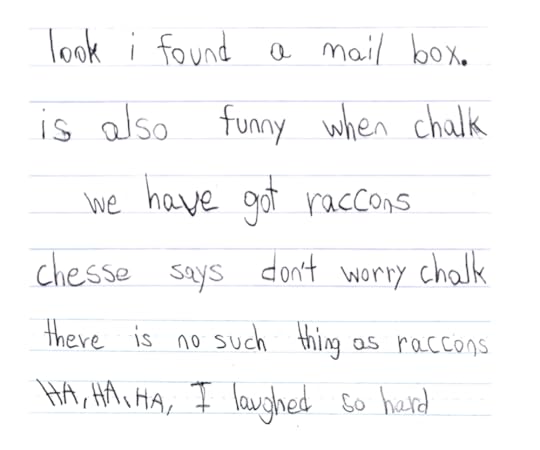 look i found a mail box.
is also funny when chalk
we have got raccons
chesse says don't worry chalk
there is no such thing as raccons
HA, HA, HA, I laughed so hard